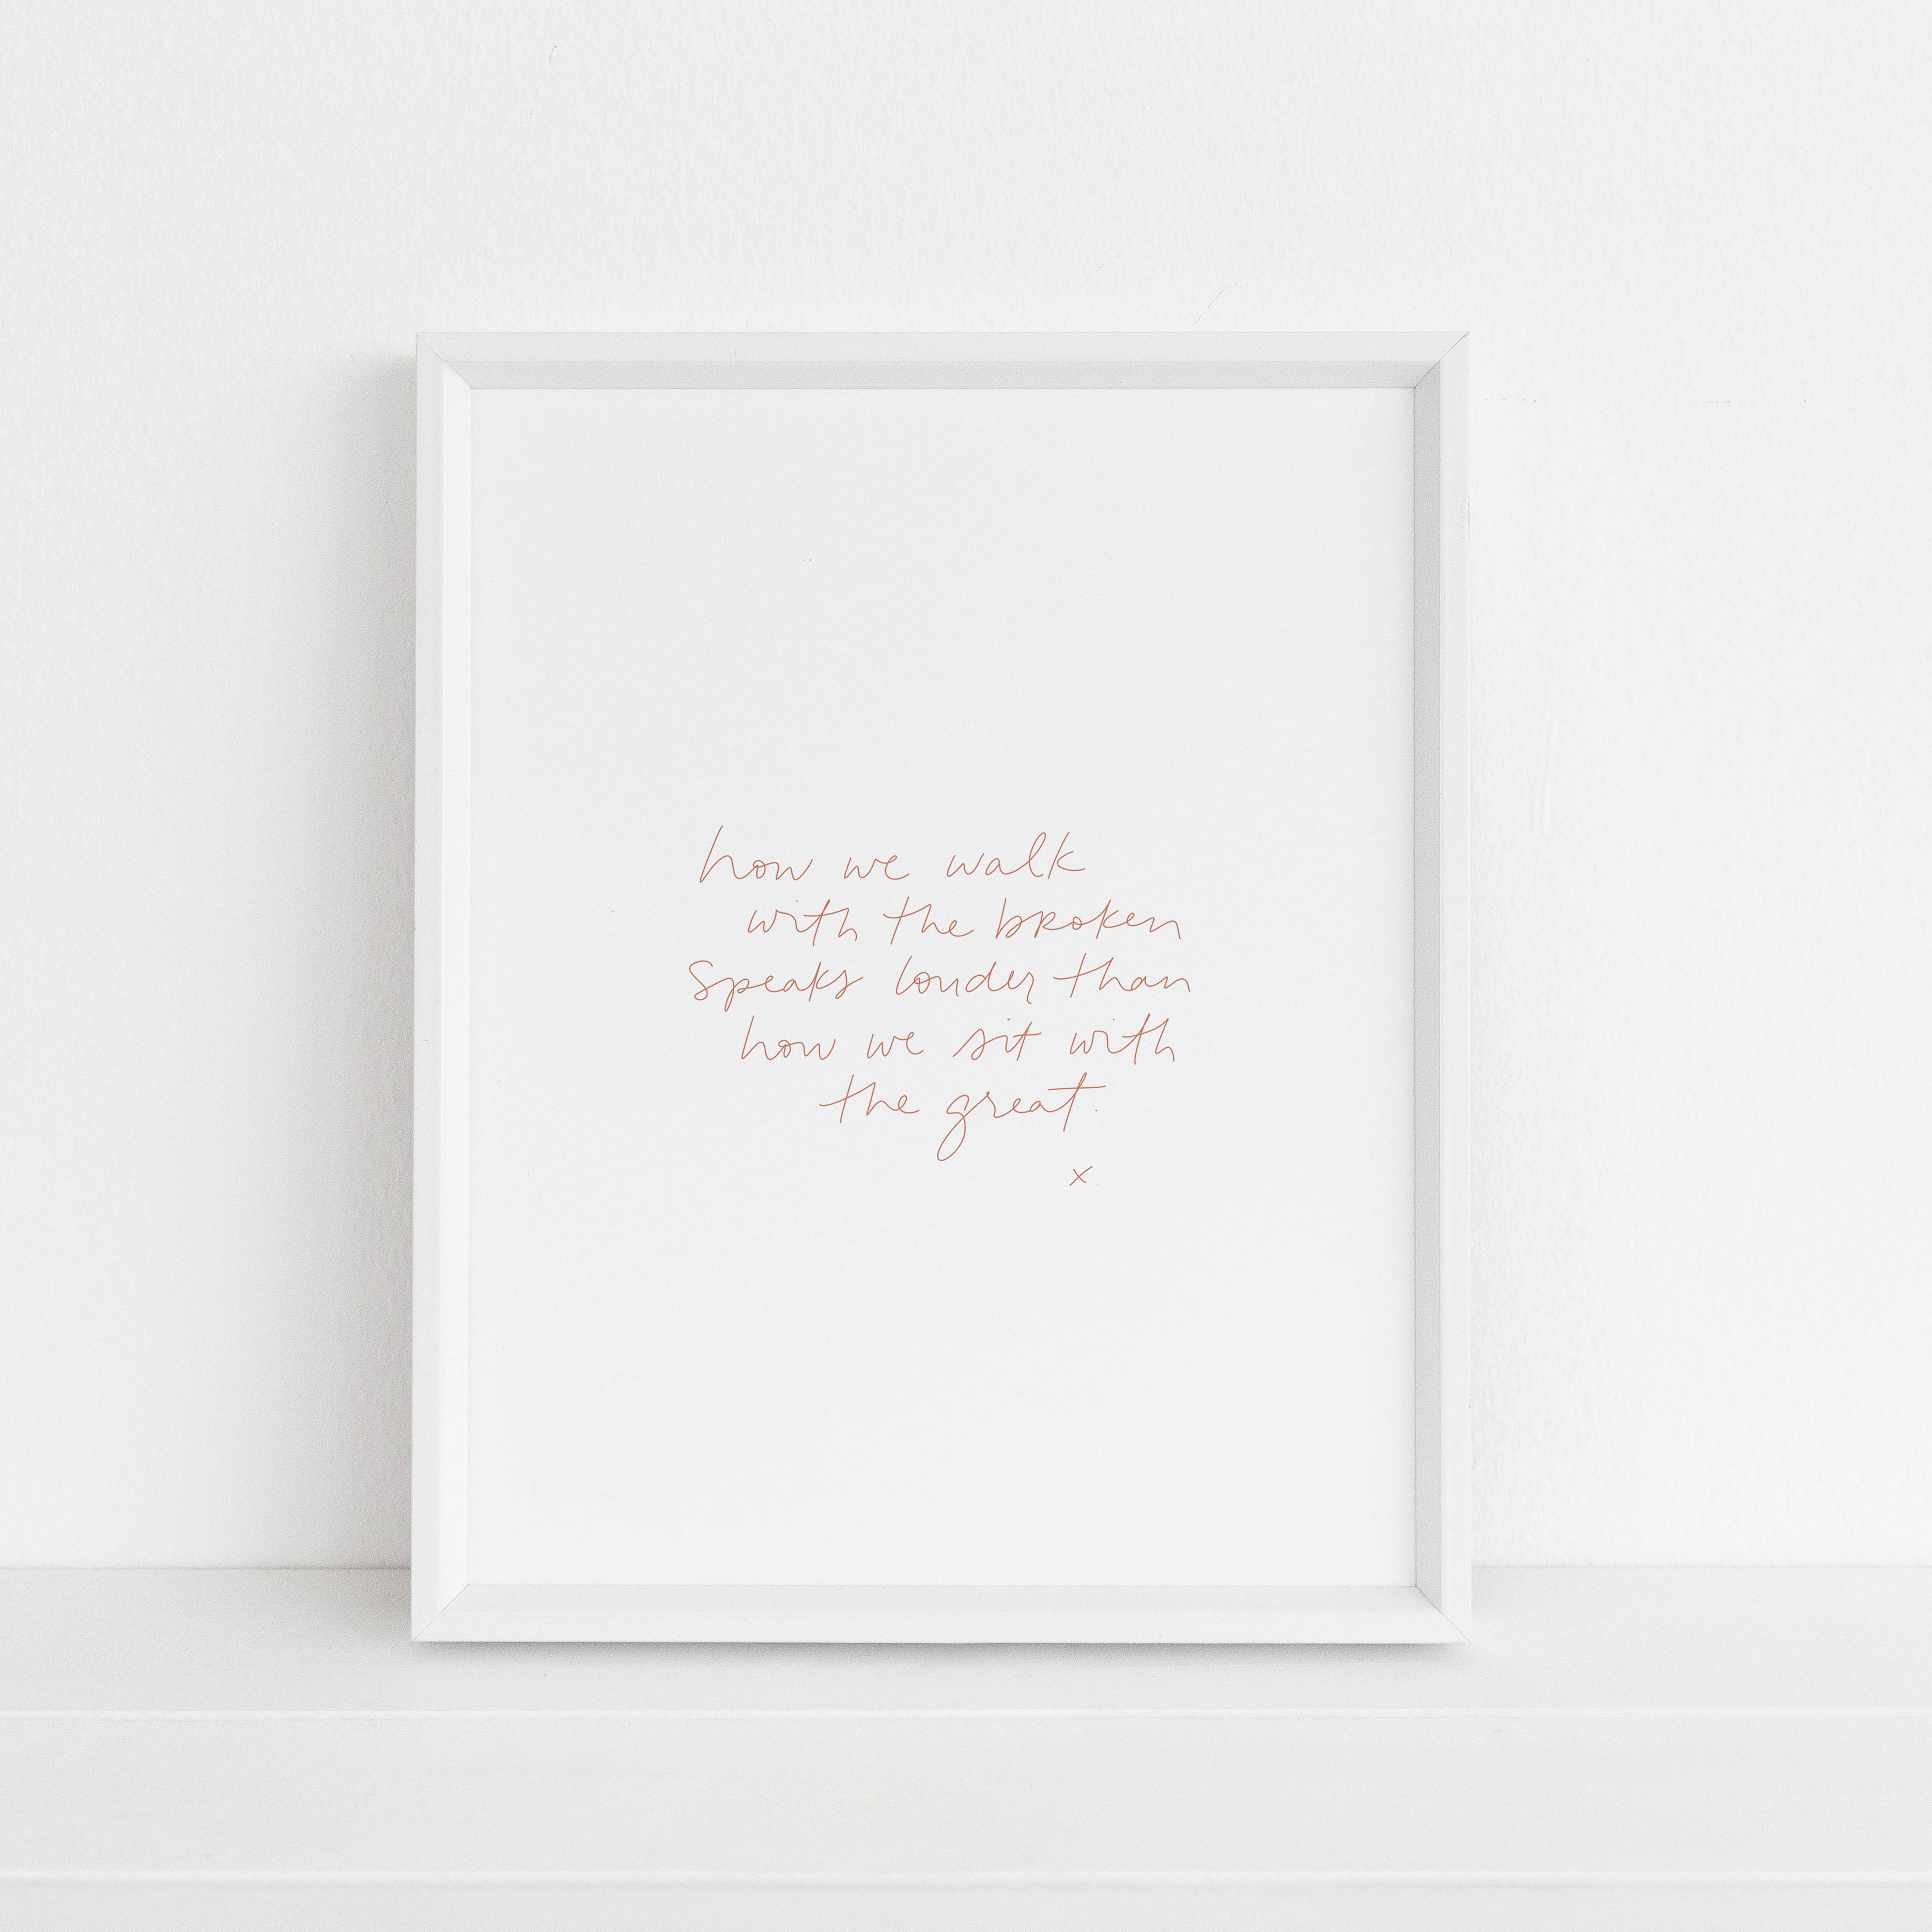 how we walk
with the broken
speaks louder than
how we sit with
the great.
x